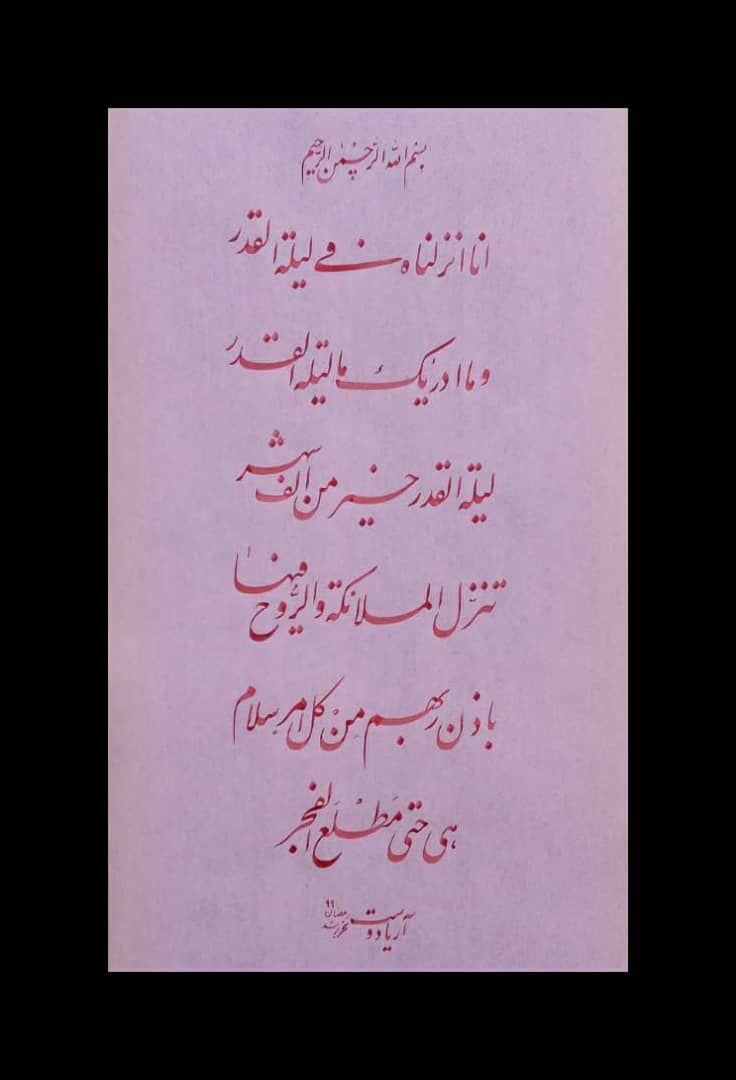 بسم الله الرحمن الرحیم
انا انزلناه فے لیلة القدر
و ما ادریٰک ما لیلة القدر
لیلة القدر خیر من الف شهر
تنزّل الملائکة والرُّوح فیهٰا
باذن ربهم مِنْ کل امرسلام
هی حتی مَطْلَع الفجر
آریادوست
رمضان ۹۹